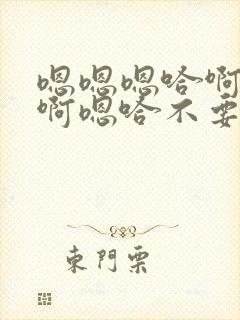 嗯嗯嗯哈啊
啊嗯哈不要
東門票